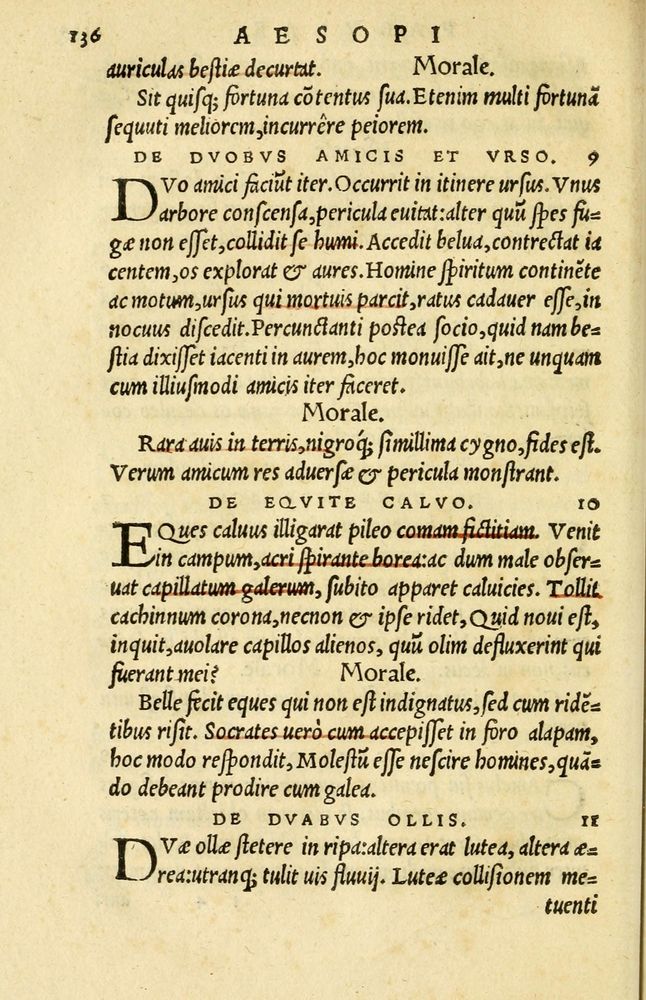 136 AESOPI
auriculas bestiæ decurtat. Morale.
Sit quisq; fortuna cōtentus sua. Etenim multi fortunā
sequuti meliorem, incurrêre peiorem.
DE DVOBVS AMICIS ET VRSO. 9
DVo amici faciūt iter. Occurrit in itinere ursus. Vnus
arbore conscensa, pericula euitat: alter quū spes fu=
gæ non esset, collidit se humi. Accedit belua, contrectat ia
centem, os explorat & aures. Homine spiritum continēte
ac motum, ursus qui mortuis parcit, ratus cadauer esse, in
nocuus discedit. Percunctanti postea socio, quid nam be=
stia dixisset iacenti in aurem, hoc monuisse ait, ne unquam
cum illiusmodi amicis iter faceret.
Morale.
Rara auis in terris, nigroq́; simillima cygno, fides est.
Verum amicum res aduersæ & pericula monstrant.
DE EQVITE CALVO. 10
EQues caluus illigarat pileo comam fictitiam. Venit
in campum, acri spirante borea: ac dum male obser=
uat capillatum galerum, subito apparet caluicies. Tollit
cachinnum corona, necnon & ipse ridet, Quid noui est,
inquit, auolare capillos alienos, quū olim defluxerint qui
fuerant mei? Morale.
Belle fecit eques qui non est indignatus, sed cum ridē=
tibus risit. Socrates uerò cum accepisset in foro alapam,
hoc modo respondit, Molestū esse nescire homines, quā=
do debeant prodire cum galea.
DE DVABVS OLLIS. 11
DVæ ollæ stetere in ripa: altera erat lutea, altera æ=
rea: utranq; tulit uis fluuij. Luteæ collisionem me=
tuenti